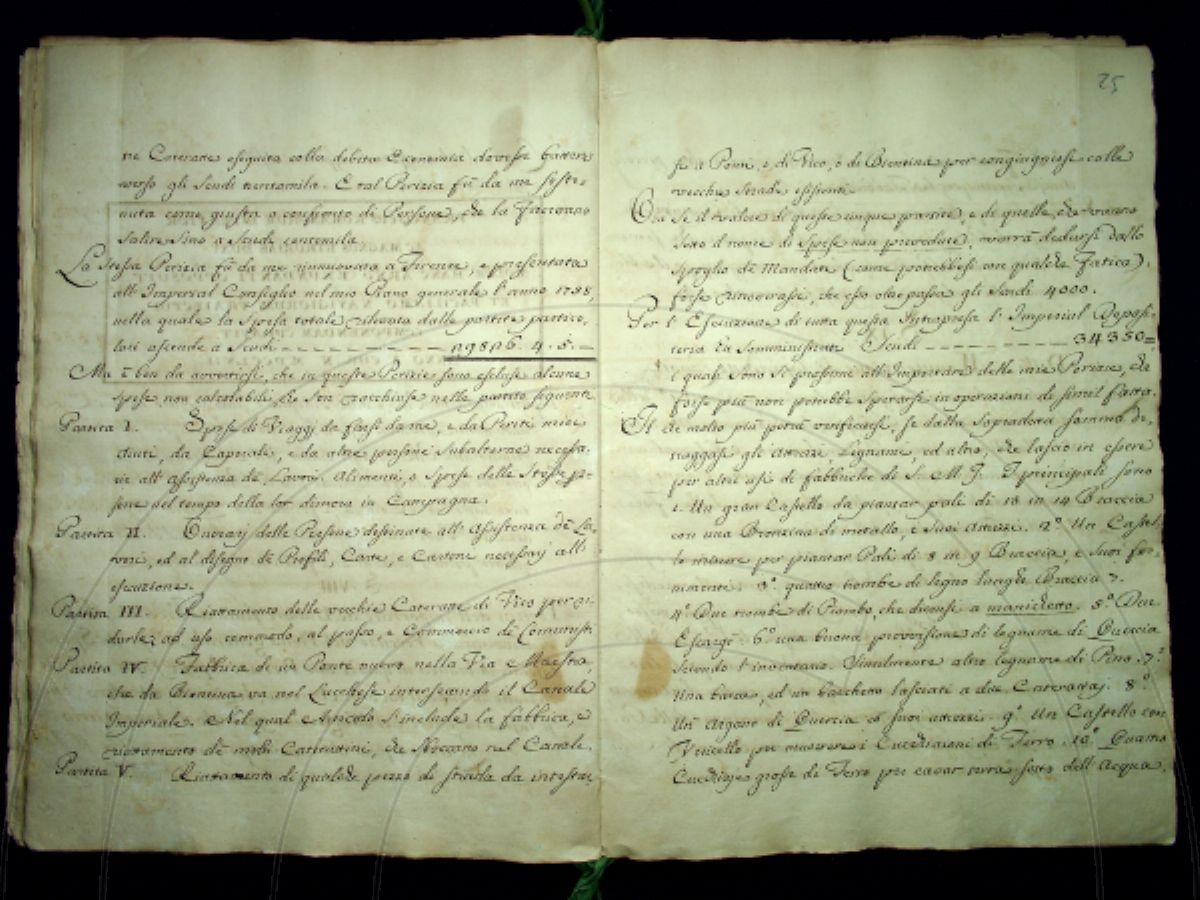 tre Cateratte eseguita colla debita Economia dovesse battere
verso gli Scudi trentamila. E tal Perizia fù da me soste-
nuta come giusta a confronto di Persone, che la facevano
salire sino a Scudi centomila.
La stessa Perizia fù da me rinnovata a Firenze, e presentata
all' Imperial Consiglio nel mio Piano generale l' anno 1758,
nella quale la Spesa totale rilevata dalle partite partico-
lari ascende a Scudi
Ma è ben da avvertirsi, che in queste Perizie sono escluse alcune
spese non calcolabili, che son racchiuse nelle partite seguenti
Partita I. Spese di Viaggi da farsi da me, e da Periti miei
Aiuti, da Caporale, e da altre persone subalterne necessa-
rie all' assistenza de' Lavori. Alimenti, e Spese delle Stesse per-
sone nel tempo della lor dimora in Campagna.
Partita II. Onorarj delle Persone destinate all' assistenza de' La-
vori, ed al disegno de' Profili, Carte, e Cartoni necessarj all'
esecuzione.
Partita III. Riattamento delle vecchie Cateratte di Vico per ri-
darle ad uso comodo, al passo, e Commercio di
Partita IV. Fabbrica di un Ponte nuovo nella Via Maestra,
che da Bientina va nel Lucchese intersecando il Canale
Imperiale. Nel qual Articolo s' include la fabbrica, e
riattamento de' molti che sboccano nel Canale.
Partita V. Riattamento di qualche pezzo di strada da
25
se a Ponti, e di Vico, e di Bientina per congiungersi colle
vecchie strade esistenti.
Ora se il valore di queste cinque partite, e di quelle, che vanno
sotto il nome di Spese non prevedute, verrà dedursi dallo
spoglio de' Mandati (come potrebbesi con qualche fatica).
forse troverassi, che esso oltrepassa gli Scudi 4000.
Per l' Esecuzione di tutta questa Intrapresa l' Imperial Deposi-
teria ha somministrati Scudi 34350=
i quali sono sì prossimi all' Importare delle mie Perizie, che
forse più non potrebbe sperarsi in operazioni di simil fatta.
Il che molto più potrà verificarsi, se dalla sopradetta somma de-
traggasi gli Attrezzi, Legname, ed altro, che lascio in essere
per altri usi di fabbriche di S. M. I. I principali sono
1. Un gran Castello da piantar pali di 12 in 14 Braccia
con una Bronzina di metallo, e suoi Attrezzi. 2° Un Castel-
lo minore per piantar Pali di 8 in 9 Braccia, e suoi for-
nimenti. 3° quattro trombe di legno lunghe Braccia 7.
4° Due trombe di Piombo, che diconsi a manichetto. 5° Due
6° una buona provvisione di legname di Quercia
secondo l' inventario. Similmente altro legname di Pino. 7°
Una barca, ed un barchetto lasciati a due Caterattaj. 8°
Un Argano di Quercia co' suoi attrezzi. 9° Un Castello con
Verricello per muovere i Cucchiaioni di Ferro. 10° Quattro
grosse di Ferro per cavar terra sotto dell' Acqua.